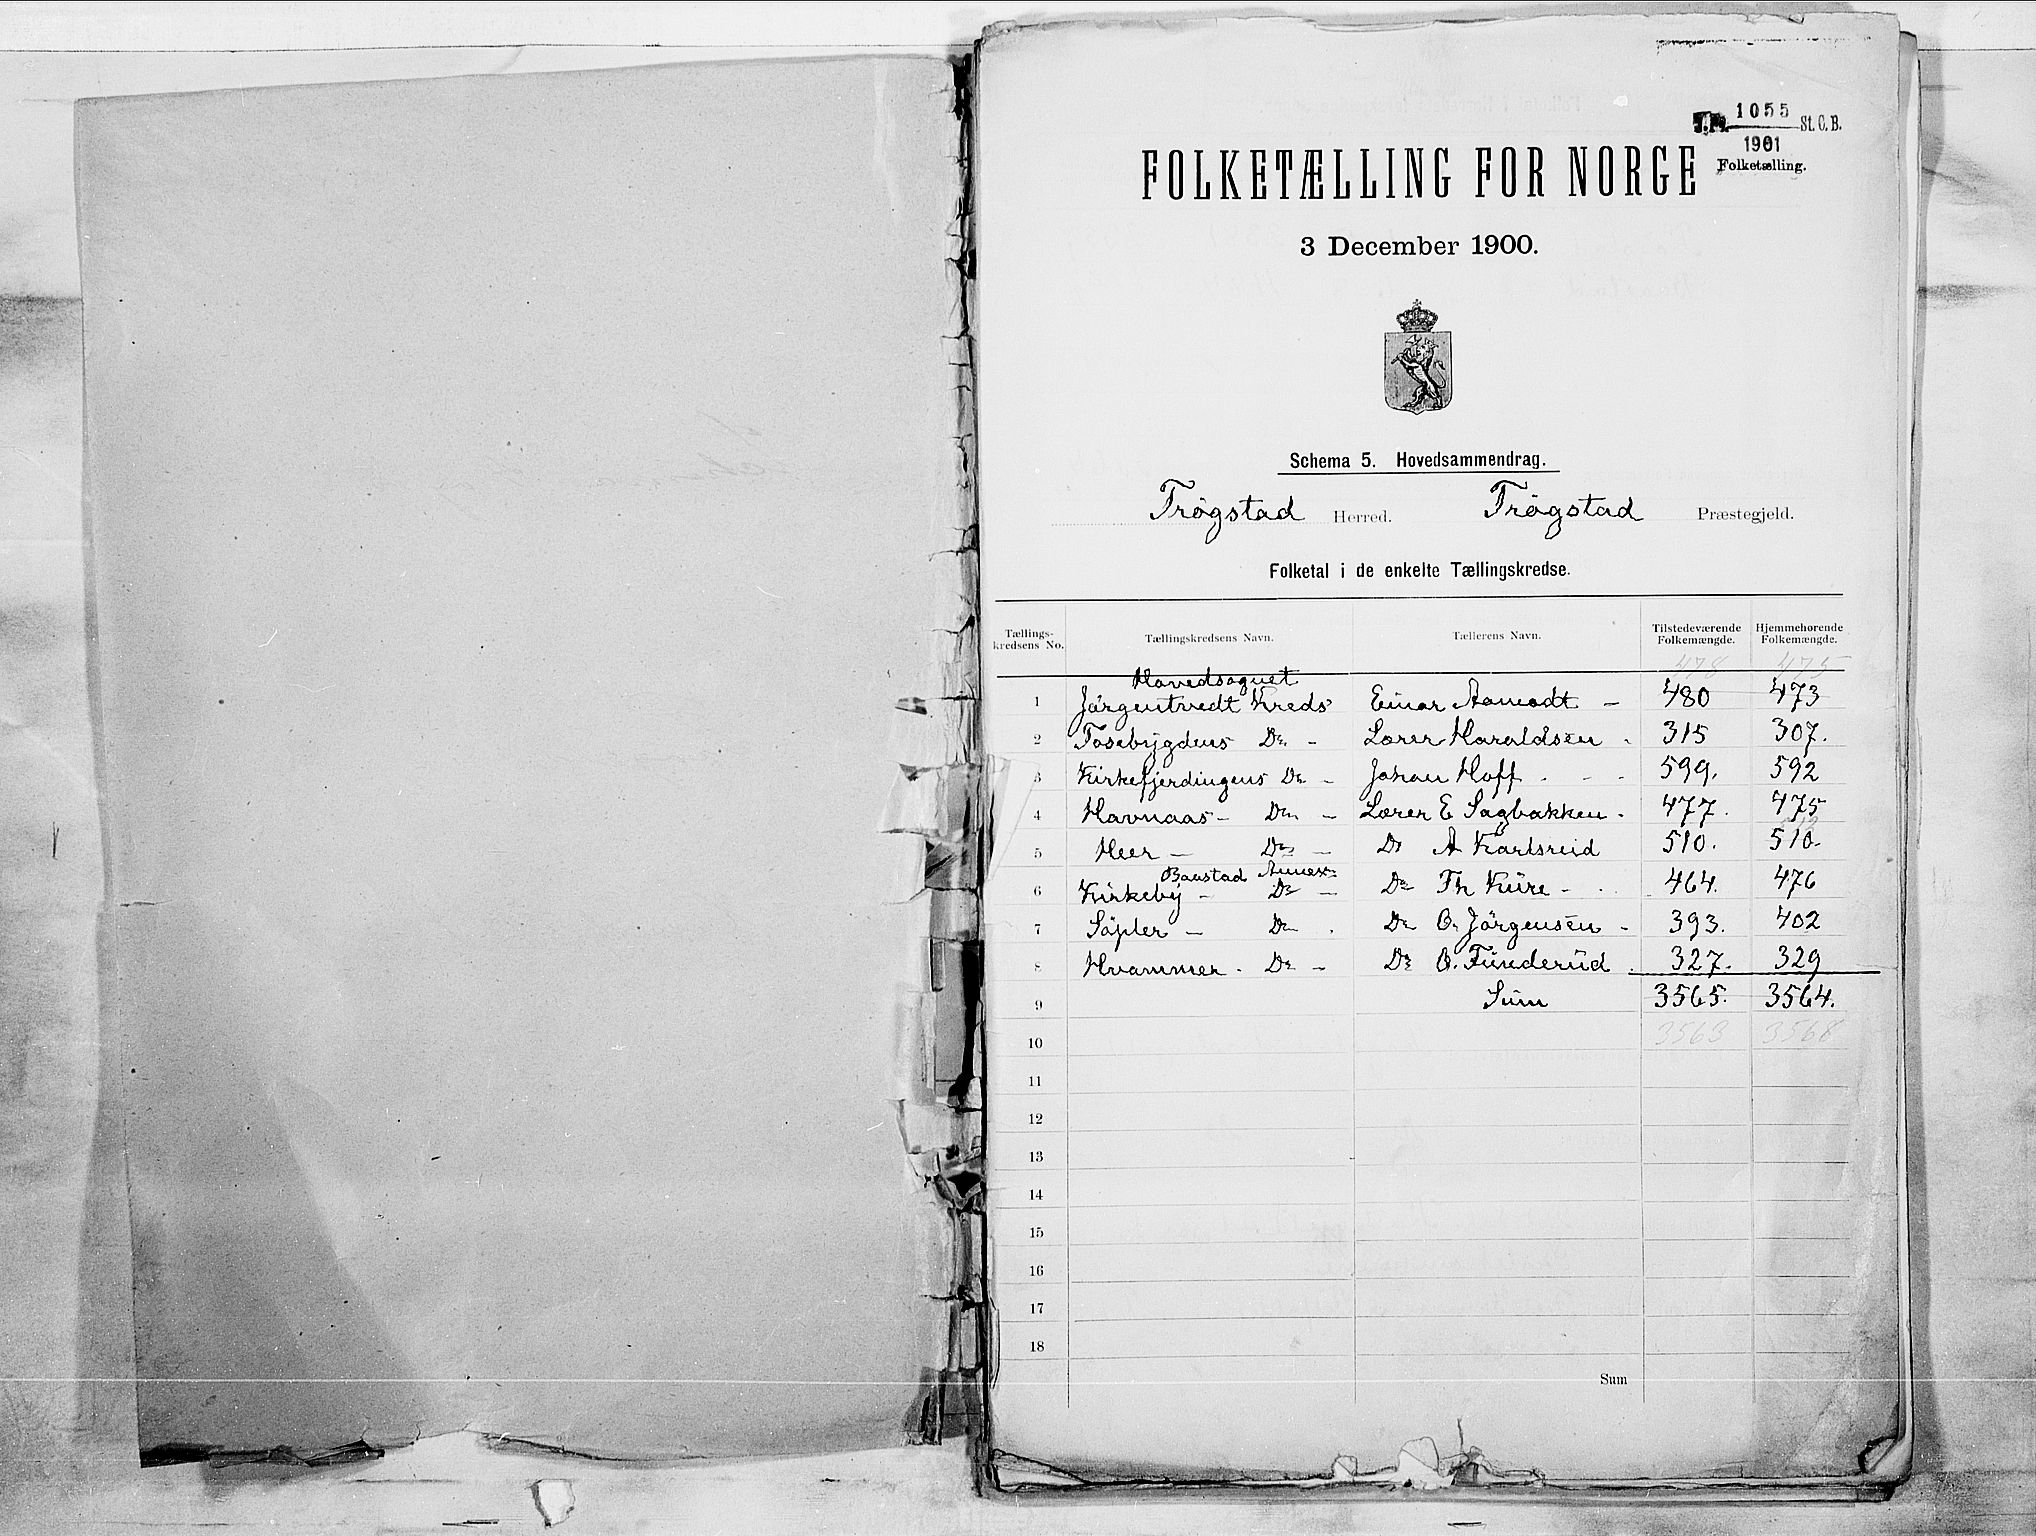 J.No. 1055 St. C. B.
1901
Folketælling.
FOLKETÆLLING FOR NORGE
3 December 1900.
Schema 5. Hovedsammendrag.
Trøgstad Herred. Trøgstad Præstegjeld.
Folketal i de enkelte Tællingskredse.
Tællings-kredsens No. Tællingskredsens Navn. Tællerens Navn. Tilstedeværende Folkemængde. Hjemmehørende Folkemængde.
478 475
Hovedsognet
1 Jörgentvedt Kreds Einar Aamodt - 480 473
2 Tosebygdens Do - Lærer Haraldsen - 315 307.
3 Kirkefjerdingens Do - Johan Hoff - - - 599. 592
4 Havnaas - Do - Lærer E Sagbakken - 477. 475
5 Heer - Do - Do A Karlsreid 510. 510.
Baastad Annex
6 Kirkeby - Do - Do Th Kure - 464. 476
7 Söpler - Do - Do O. Jörgensen - 393. 402
8 Hvammer - Do - Do O. Funderud. 327. 329
9 Sum 3565. 3564.
10 3563 3568
11
12
13
14
15
16
17
18
Sum